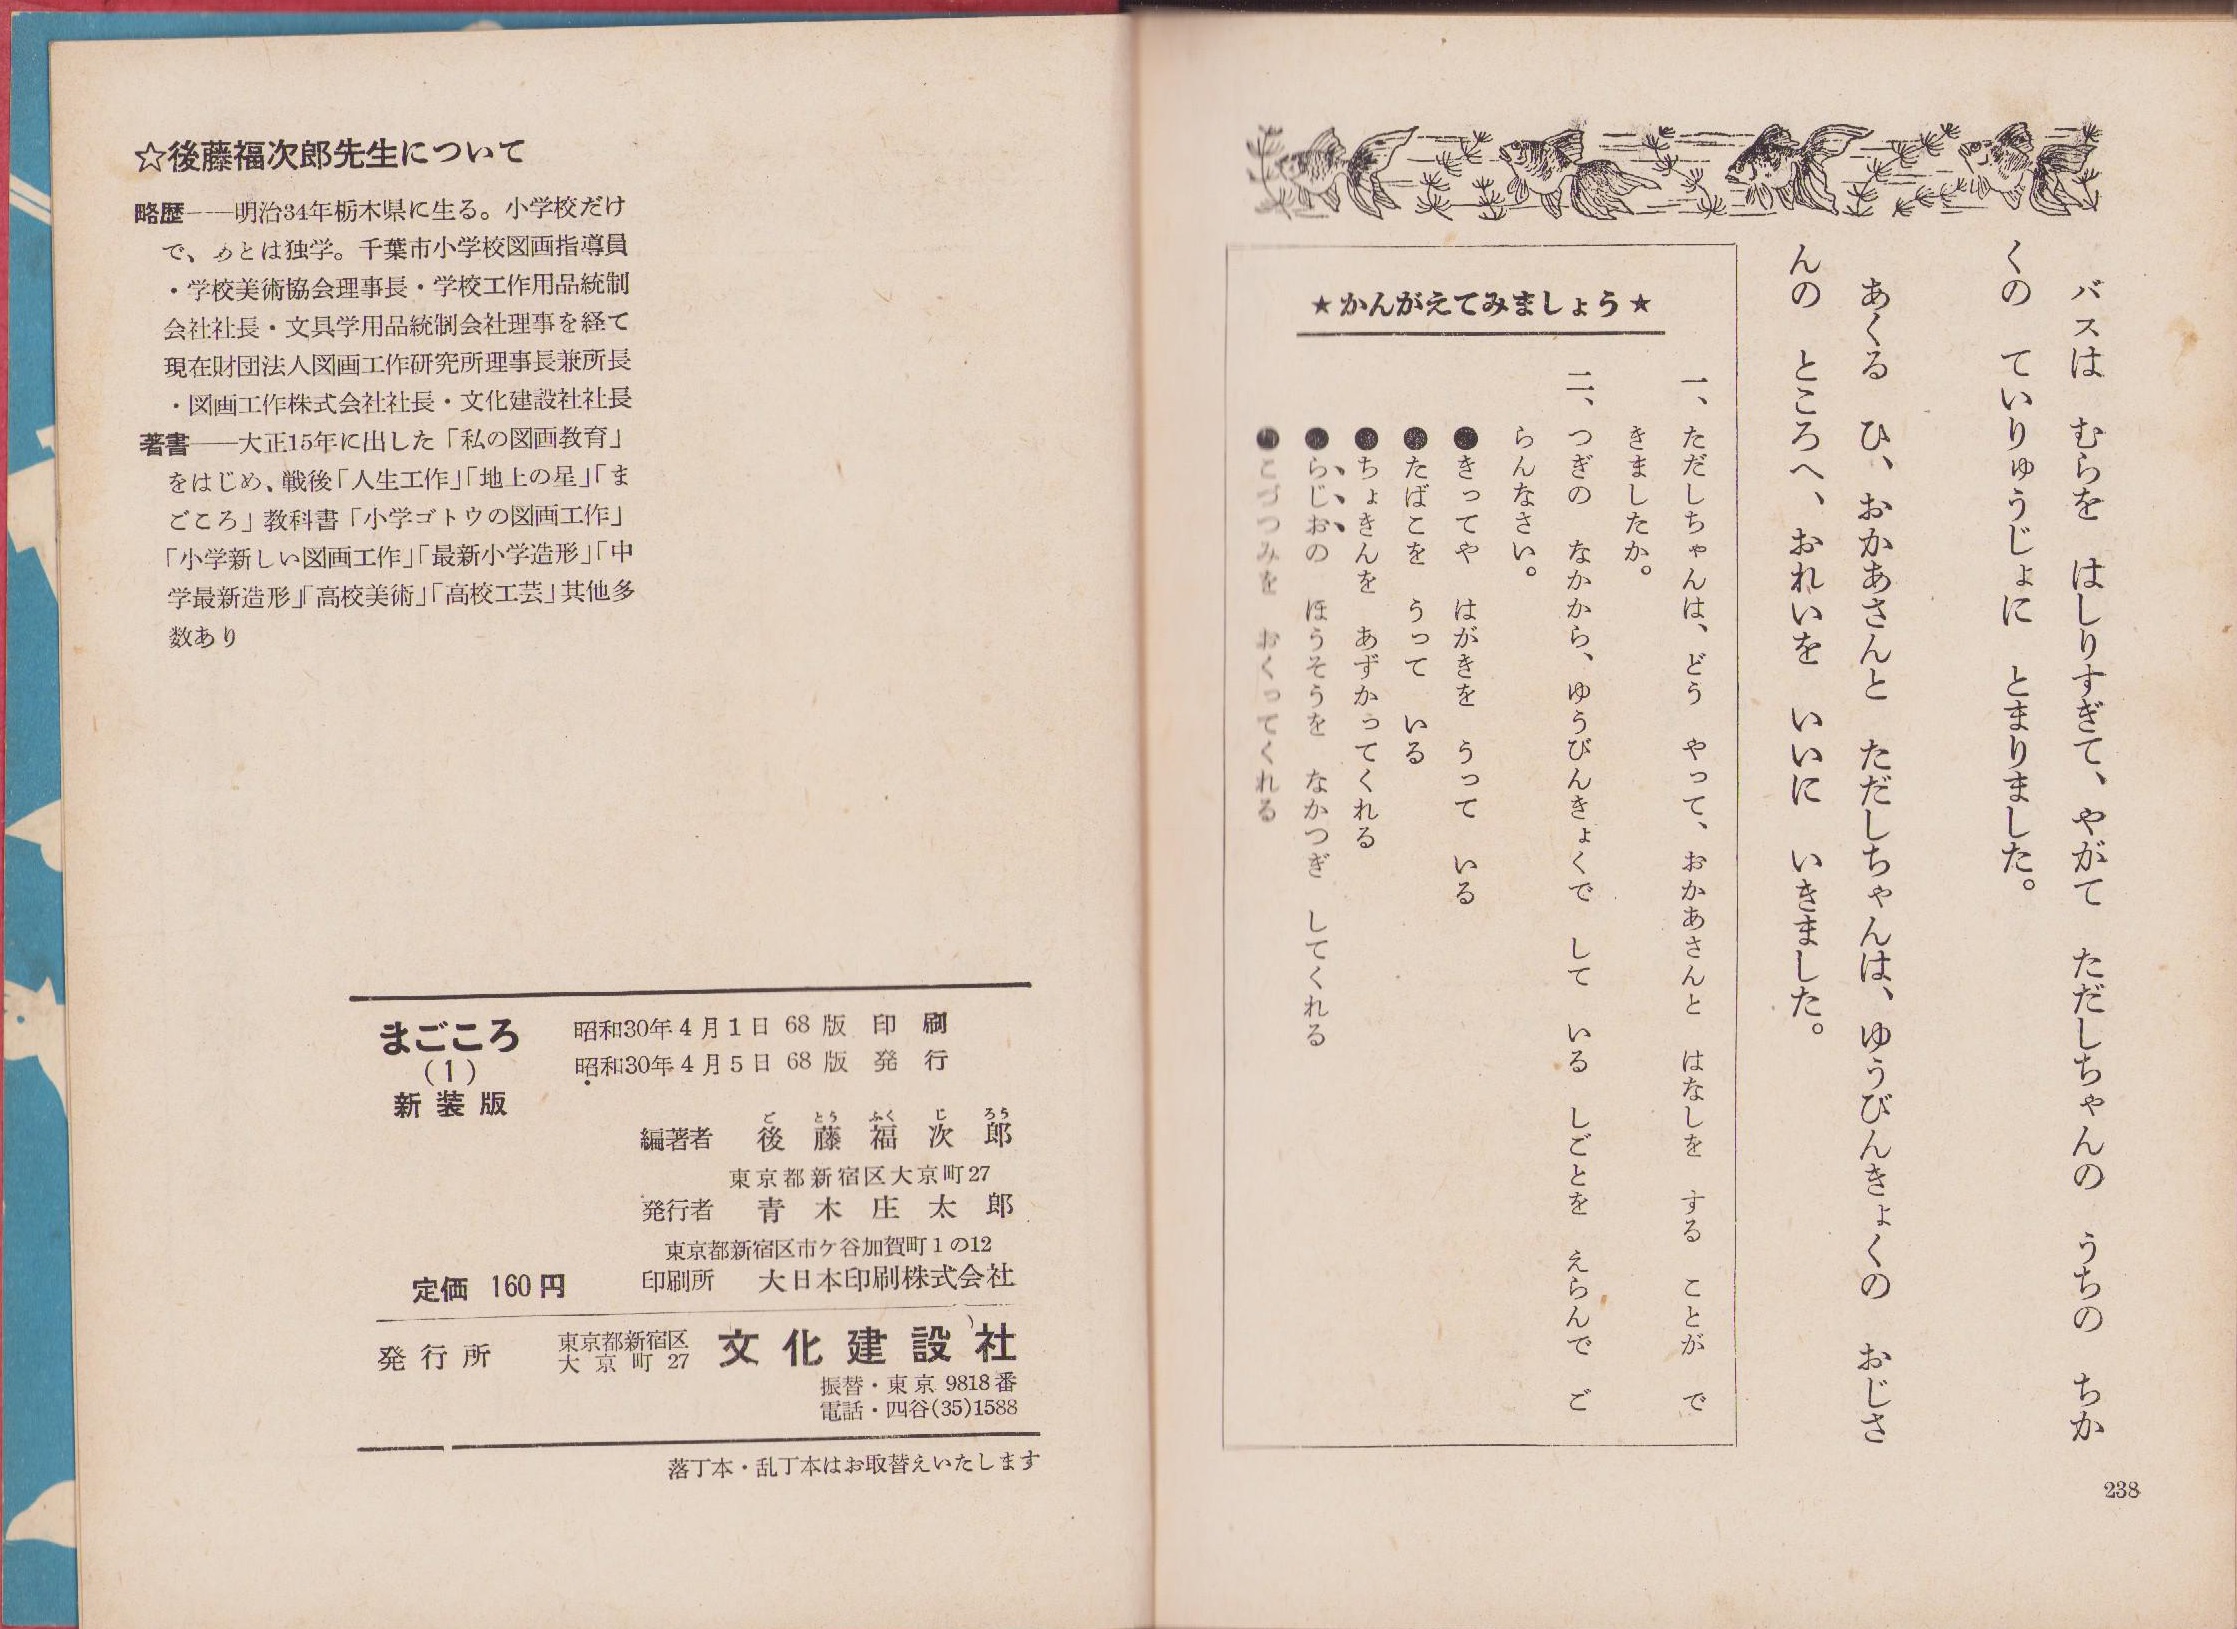 バスは　むらを　はしりすぎて、やがて　ただしちゃんの　うちの　ちか
くの　ていりゅうじょに　とまりました。
あくる　ひ、おかあさんと　ただしちゃんは、ゆうびんきょくの　おじさ
んの　ところへ、おれいを　いいに　いきました。
★かんがえてみましょう★
一、ただしちゃんは、どう　やって、おかあさんと　はなしを　する　ことが　で
きましたか。
二、つぎの　なかから、ゆうびんきょくで　して　いる　しごとを　えらんで　ご
らんなさい。
●きってや　はがきを　うって　いる
●たばこを　うって　いる
●ちょきんを　あずかってくれる
●らじおの　ほうそうを　なかつぎ　してくれる
●こづつみを　おくってくれる
238
☆後藤福次郎先生について
略歴――明治34年栃木県に生る。小学校だけ
で、あとは独学。千葉市小学校図画指導員
・学校美術協会理事長・学校工作用品統制
会社社長・文具学用品統制会社理事を経て
現在財団法人図画工作研究所理事長兼所長
・図画工作株式会社社長・文化建設社社長
著書――大正15年に出した「私の図画教育」
をはじめ、戦後「人生工作」「地上の星」「ま
ごころ」教科書「小学ゴトウの図画工作」
「小学新しい図画工作」「最新小学造形」「中
学最新造形」「高校美術」「高校工芸」其他多
数あり
まごころ
(1)
新装版
昭和30年4月1日 68版 印刷
昭和30年4月5日 68版 発行
ご とう ふく じ ろう
編著者 後藤福次郎
東京都新宿区大京町27
発行者 青木庄太郎
東京都新宿区市ケ谷加賀町1の12
印刷所 大日本印刷株式会社
定価 160円
発行所 東京都新宿区
大京町27
文化建設社
振替・東京 9818番
電話・四谷(35)1588
落丁本・乱丁本はお取替えいたします